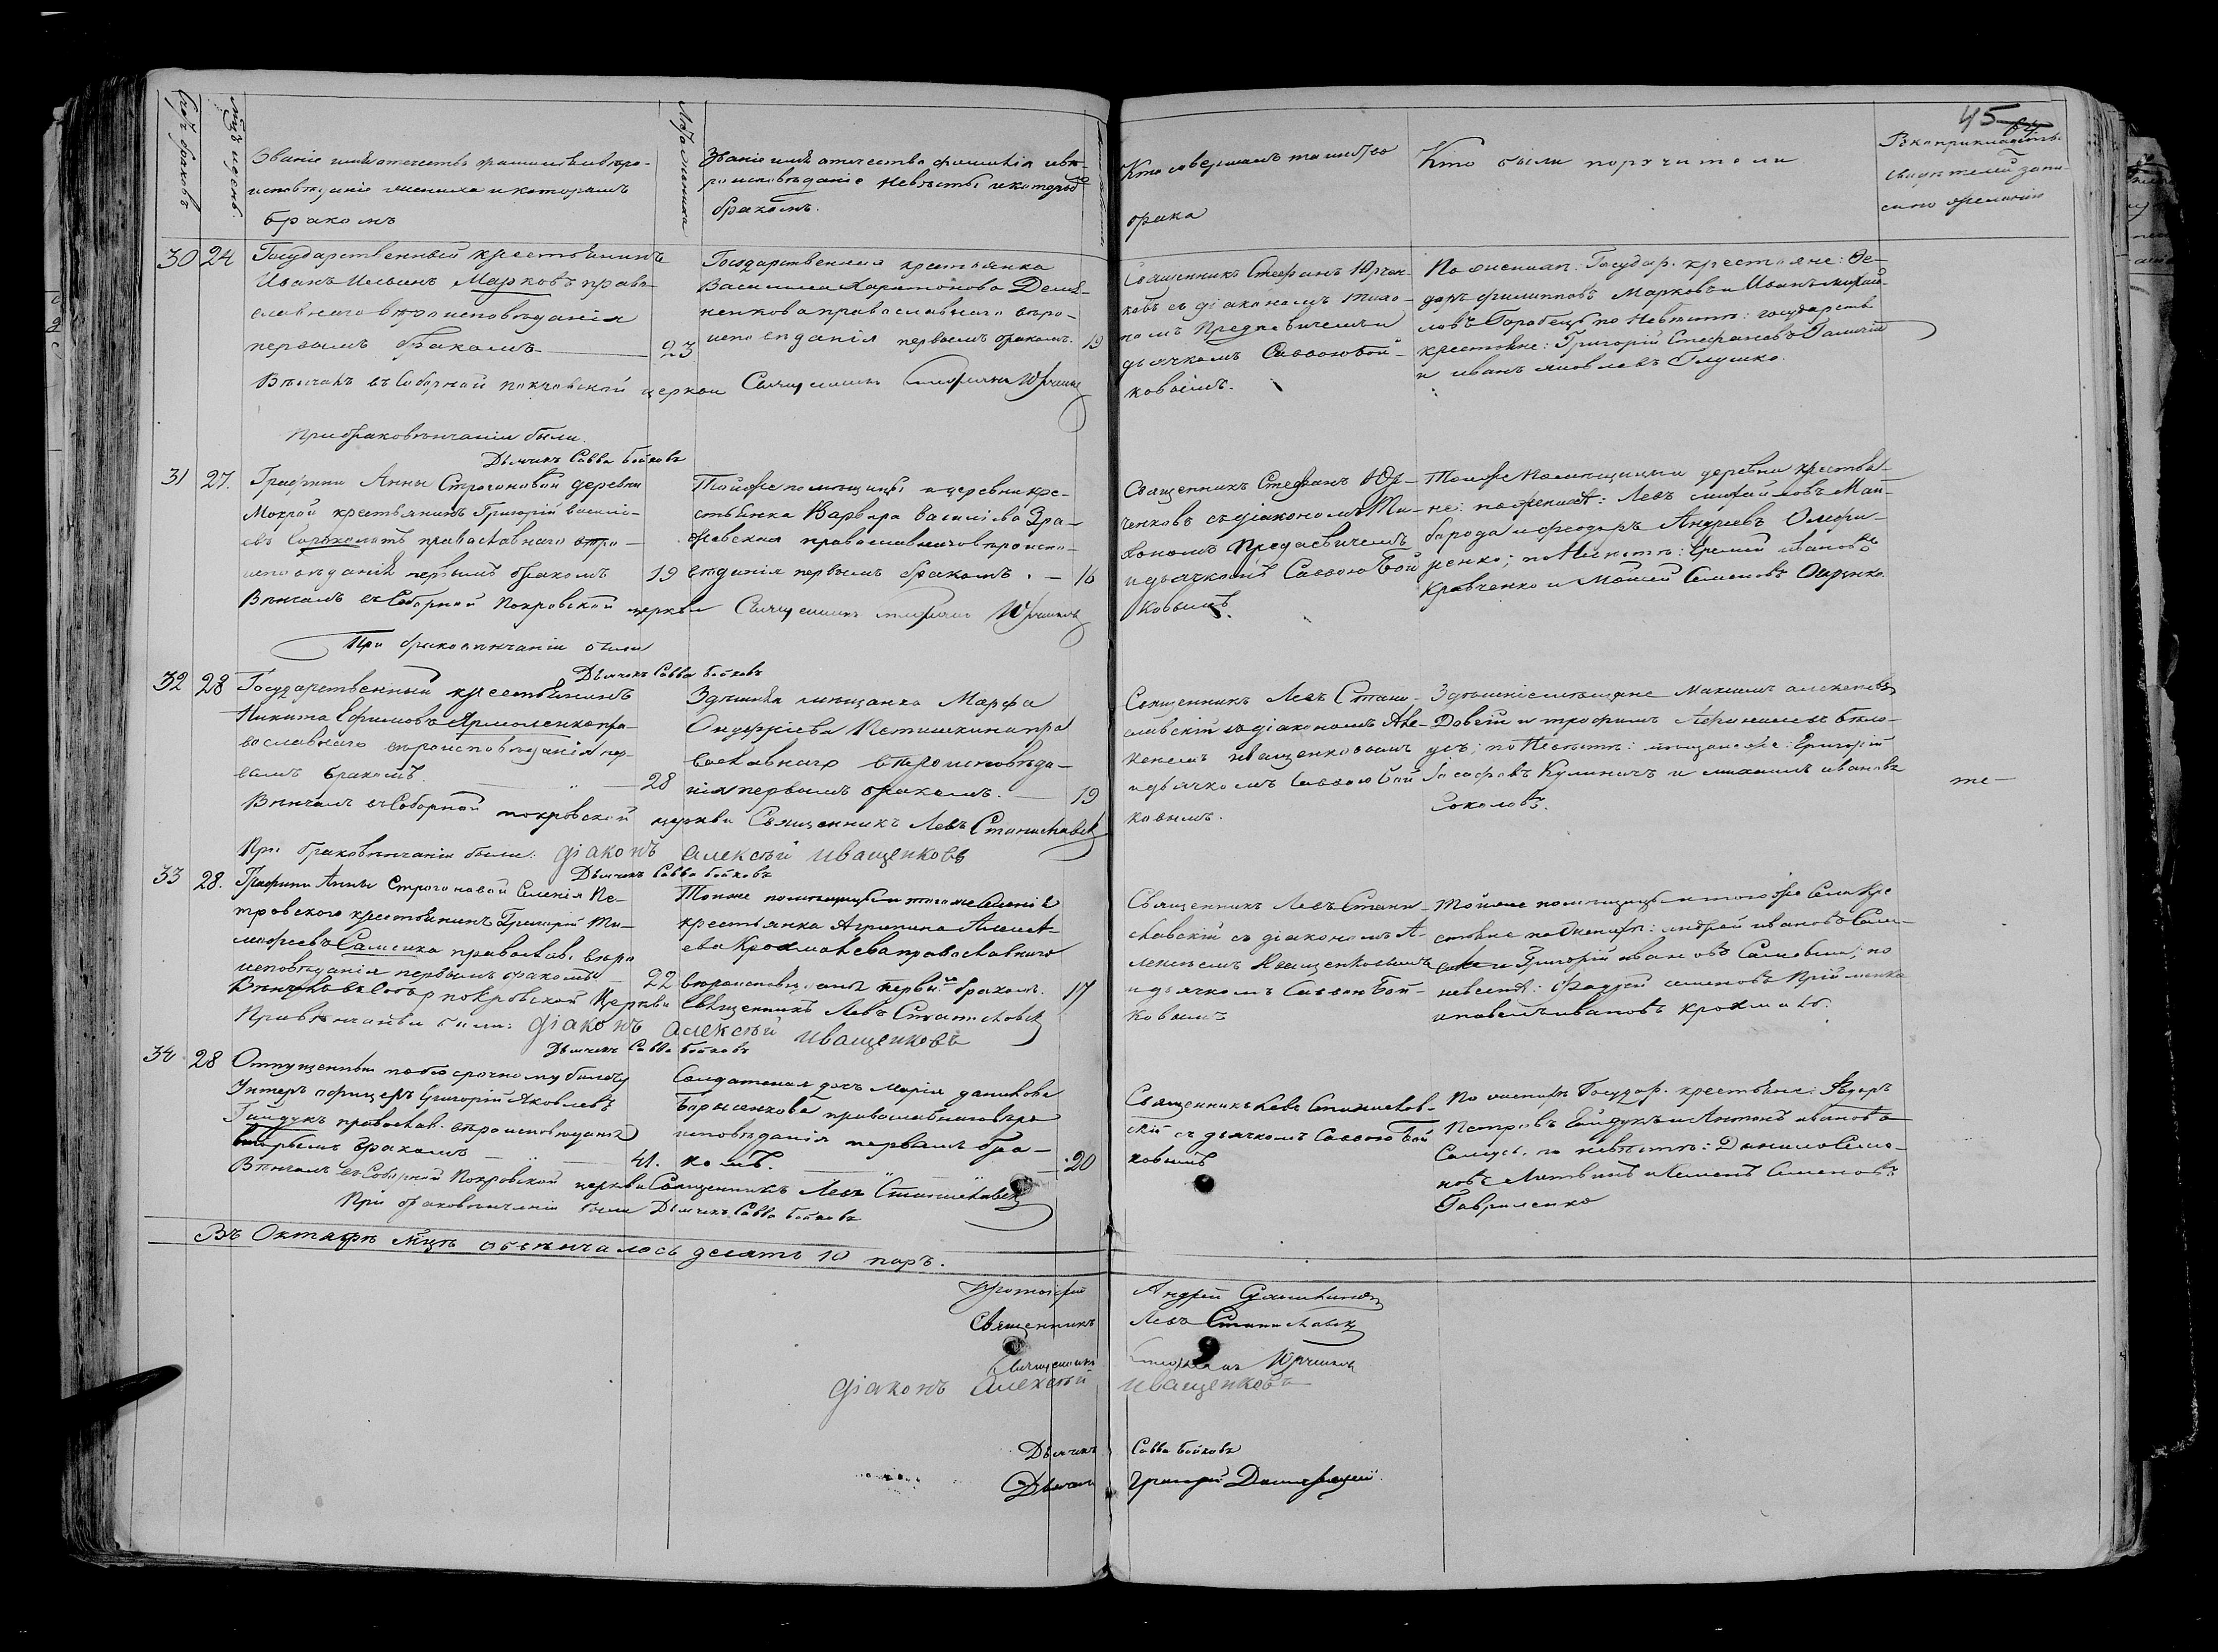 45
Счетъ браковъ
Мцъ и день.
Званіе имя отечество фамилія и вѣро-
исповѣданіе жениха и которымъ
бракомъ
Лѣта жениха
Званіе имя отечество фамилія и вѣ-
роисповѣданіе невѣсты и которымъ
бракомъ.
Кто совершалъ таинство
брака
Кто были поручители
30 24
Государственный крестьянинъ
Иванъ Ильинъ Марковъ право-
славнаго вѣроисповѣданія
первымъ бракомъ 23
Государственная крестьянка
Василиса Харитонова
православнаго вѣро-
исповѣданія первымъ бракомъ. 19
Священникъ Стефанъ Юрчен-
ковъ съ діакономъ Тихо-
номъ Предаевичемъ и
дьячкомъ Саввою Бой-
ковымъ.
По женихѣ: Государ. крестьяне: Ѳе-
доръ Филипповъ Марковъ и Иванъ Михай-
ловъ Горобецъ по невѣстѣ: государств.
крестьяне: Григорій Стефановъ
и Иванъ Яковлевъ Глушко.
Вѣнчалъ въ Соборной Покровской церкви Священникъ Стефанъ Юрченковъ
При браковѣнчаніи были.
Дьячекъ Савва Бойковъ
31 27.
Графини Анны Строгоновой деревни
Мокрой крестьянинъ Григорій Василь-
евъ Сороколатъ православнаго вѣро-
исповѣданія первымъ бракомъ 19
Тойже помѣщицы и деревни кре-
стьянка Варвара Василіева Зра-
жевская православнаго вѣроиспо-
вѣданія первымъ бракомъ. — 16
Священникъ Стефанъ Юр-
ченковъ съ діакономъ Ти-
хономъ Предаевичемъ
и дьячкомъ Саввою Бой
ковымъ.
Тойже помѣщицы и деревни крестья-
не: по женихѣ: Левъ Михайловъ Май-
борода и Феодоръ Андреевъ Олефи-
ренко; по невѣстѣ: Еремей Ивановъ
Кравченко и Моисей Семеновъ
Вѣнчалъ въ Соборной Покровской церкви Священникъ Стефанъ Юрченковъ
При браковѣнчаніи были
Дьячекъ Савва Бойковъ
32 28
Государственный крестьянинъ
Никита Ефимовъ Ярмоленко пра-
вославнаго вѣроисповѣданія пер-
вымъ бракомъ. 28
Здѣшняя мѣщанка Марфа
Онуфріева Кетишкина пра
вославнаго вѣроисповѣда-
нія первымъ бракомъ. — 19
Священникъ Левъ Стани-
славскій съ діакономъ Але-
ксеемъ Иващенковымъ
и дьячкомъ Саввою Бой
ковымъ.
Здѣшніе мѣщане Максимъ Алексѣевъ
Довгій и Трофимъ Афанасьевъ Бѣло-
усъ; по невѣстѣ: мѣщане же: Григорій
Іосафовъ Кулиничъ и Михаилъ Ивановъ
Соколовъ.
Вѣнчалъ въ Соборной Покровской церкви Священникъ Левъ Станиславскій
При браковѣнчаніи были: діаконъ Алексѣй Иващенковъ
Дьячекъ Савва Бойковъ
33 28.
Графини Анны Строгоновой Селенія Пе-
тровского крестьянинъ Григорій Ти-
мофѣевъ Саменко православ. вѣро
исповѣданія первымъ бракомъ — 22
Тойже помѣщицы и того же селенія
крестьянка Агрипина Алексѣ-
ева Крохмалева православнаго
вѣроисповѣданія первымъ бракомъ. 17
Священникъ Левъ Стани-
славскій съ діакономъ А-
лексѣемъ Иващенковымъ
и дьячкомъ Саввою Бой-
ковымъ
Тойже помѣщицы и того же Села Кре
стьяне по женихѣ: Андрей Ивановъ
и Григорій Ивановъ; по
невѣстѣ: Семеновъ Пройменко
и Павелъ Ивановъ Крохмаль.
Вѣнчалъ въ Собор Покровской Церкви Священникъ Левъ Станиславскій
При вѣнчаніи были: діаконъ Алексѣй Иващенковъ
Дьячекъ Савва Бойковъ
34 28
Отпущенный по безсрочному билету
Унтеръ офицеръ Григорій Яковлевъ
Гайдукъ православ. вѣроисповѣданія
вторымъ бракомъ — 41.
Солдатская дочь Марія Данилова
Борисенкова православнаго вѣро
исповѣданія первымъ бра-
комъ. — 20
Священникъ Левъ Станислав-
скій съ дьячкомъ Саввою Бой
ковымъ
По женихѣ Государ. крестьяне: Ѳедоръ
Петровъ Гайдукъ и Антонъ Ивановъ
Самусь, по невѣстѣ: Данило Семе-
новъ Литвинъ и Семенъ Семеновъ
Гавриленко
Вѣнчалъ въ Соборной Покровской церкви Священникъ Левъ Станиславскій
При браковѣнчаніи были Дьячекъ Савва Бойковъ
Въ Октябрѣ мцѣ обвѣнчалось десять 10 паръ.
Протоіерей Андрей
Священникъ Левъ Станиславскій
Священникъ Стефанъ Юрченковъ
діаконъ Алексѣй Иващенковъ
Дьячекъ Савва Бойковъ
Дьячекъ Григорій